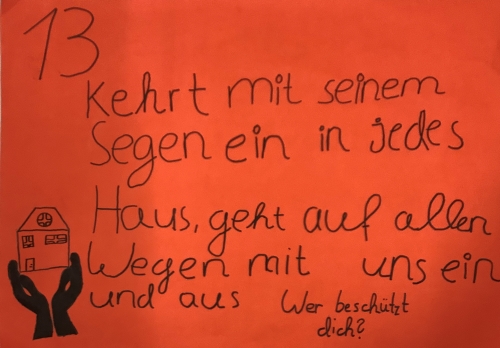 13
Kehrt mit seinem
Segen ein in jedes
Haus, geht auf allen
Wegen mit uns ein
und aus Wer beschützt
dich?